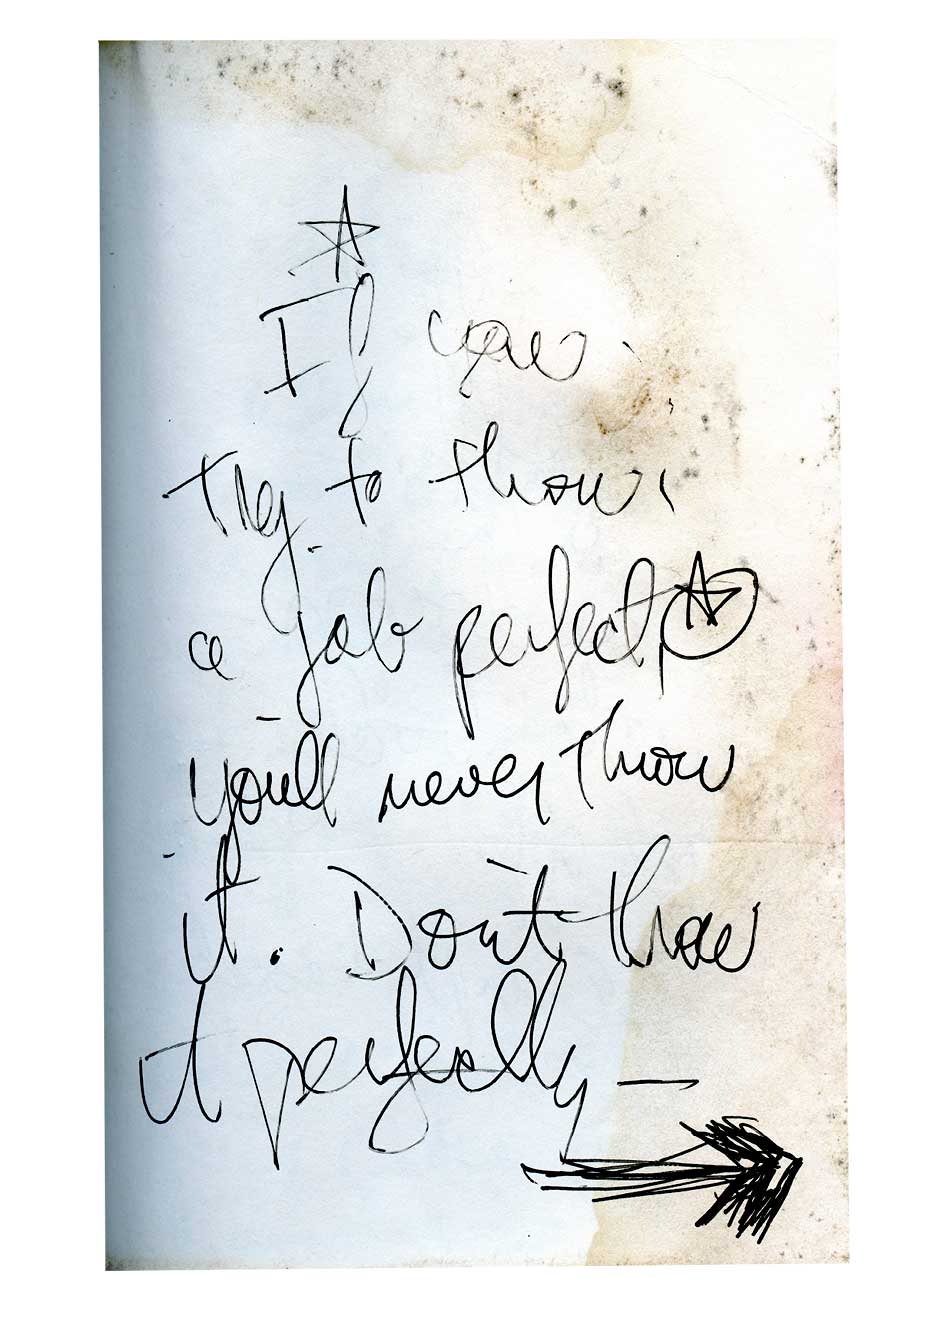 If you
try to throw
a job perfect,
you'll never throw
it. Don't throw
it perfectly —